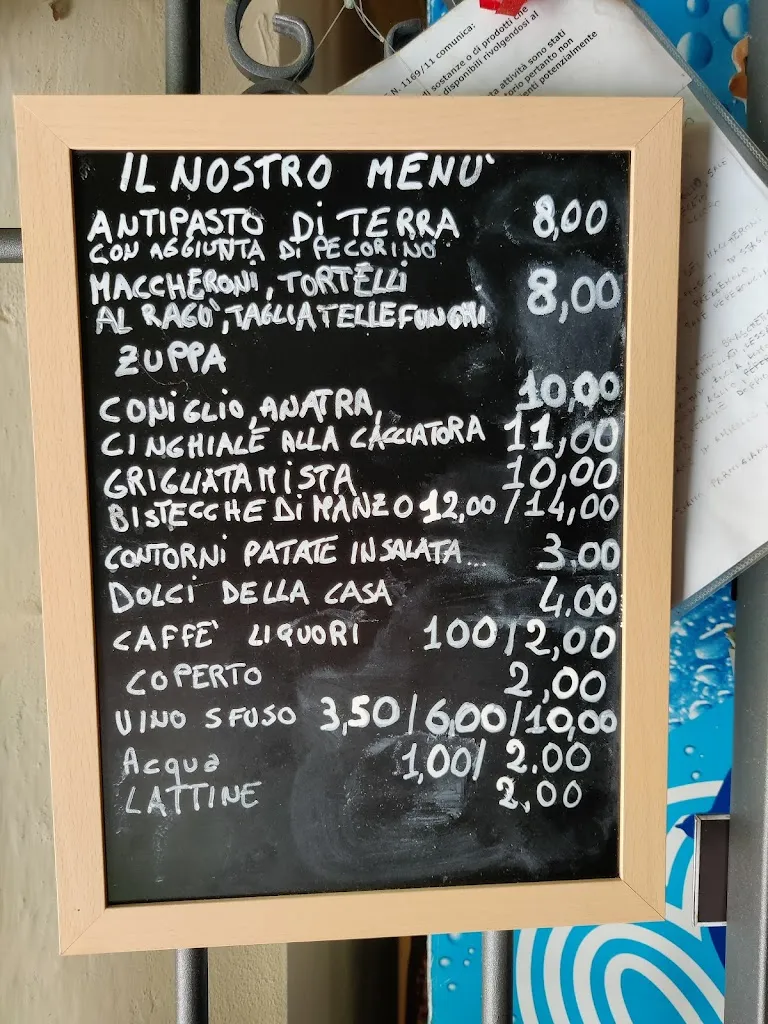 N. 1169/11 comunica:
di sostanze o di prodotti che
disponibili rivolgendosi al
ta attività sono stati
torio pertanto non
enti potenzialmente
IL NOSTRO MENU'
ANTIPASTO Di TERRA 8,00
CON AGGIUNTA Di PECORINO
MACCHERONI, TORTELLI
AL RAGU', TAGLIATELLE FUNGHI 8,00
ZUPPA
CONIGLIO, ANATRA, 10,00
CINGHIALE ALLA CACCIATORA 11,00
GRIGLIATA MISTA 10,00
BISTECCHE Di MANZO 12,00 /14,00
CONTORNI PATATE INSALATA... 3.00
DOLCI DELLA CASA 4.00
CAFFE' LIQUORI 100/2,00
COPERTO 2,00
VINO SFUSO 3,50/6,00/10,00
Acqua 1,00/ 2.00
LATTINE 2,00